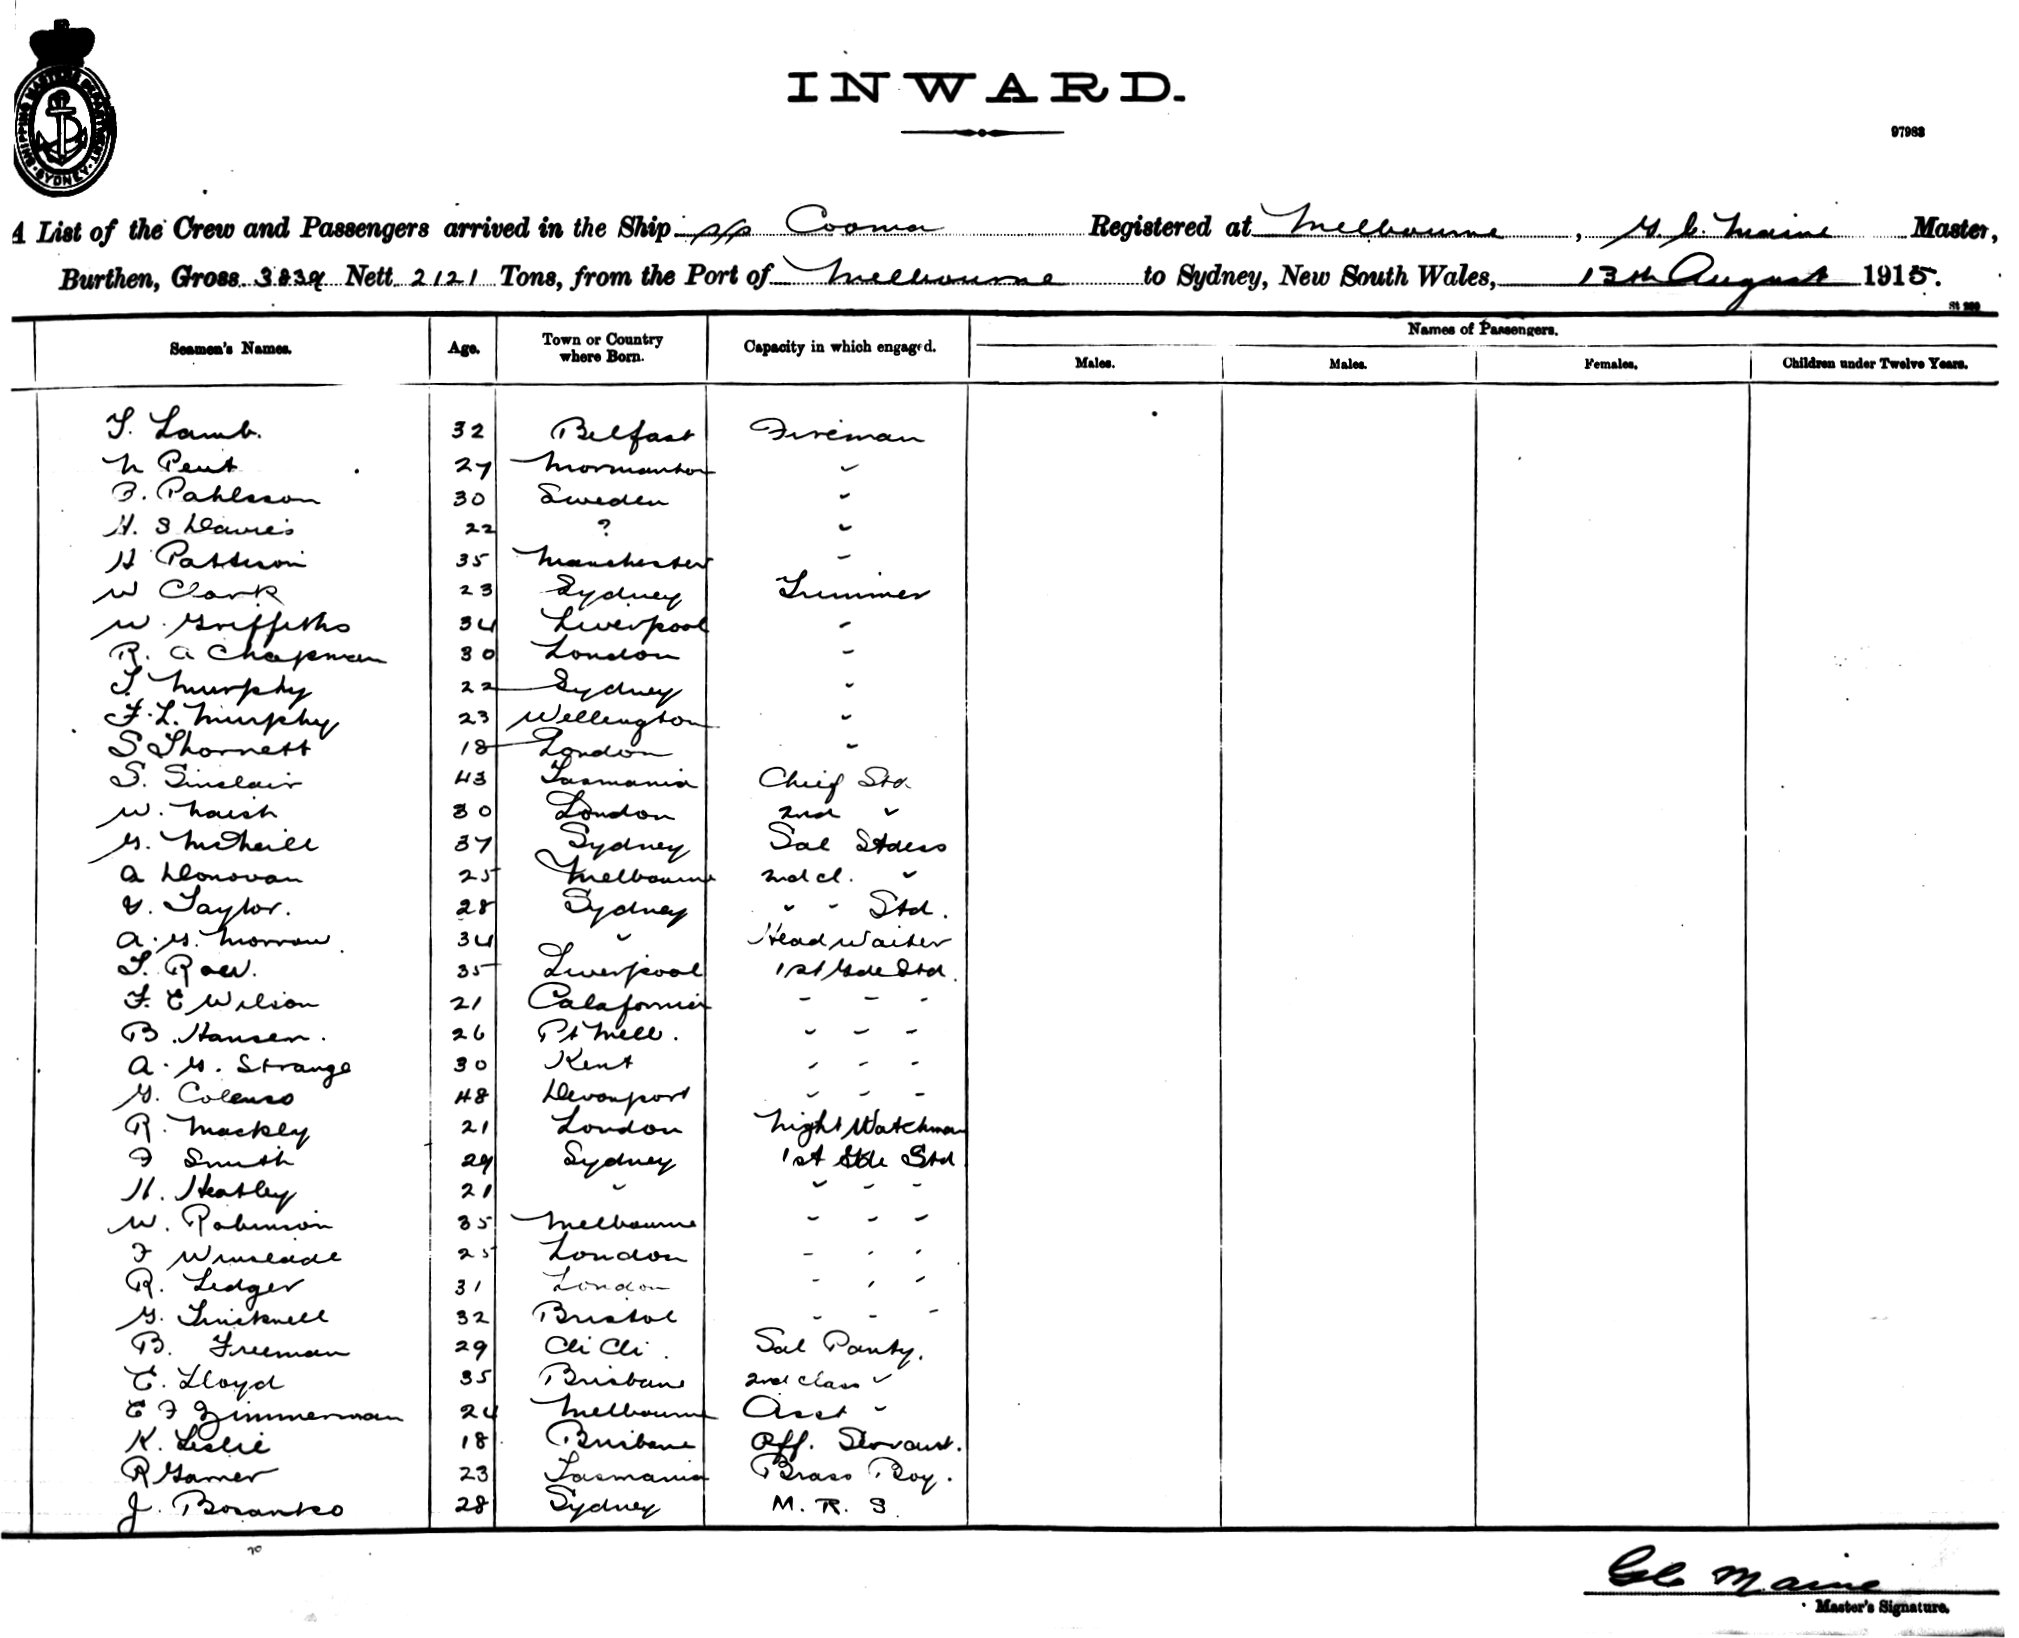 SHIPPING MASTERS DEPARTMENT. SYDNEY
INWARD.
97983
A List of the Crew and Passengers arrived in the Ship s/s Cooma Registered at Melbourne, G. C. Maine Master,
Burthen, Gross 3839 Nett 2121 Tons, from the Port of Melbourne to Sydney, New South Wales, 13th August 1915.
Names of Passengers.
Seamen's Names. Age. Town or Country where Born. Capacity in which engaged. Males. Males. Females. Children under Twelve Years.
T. Lamb. 32 Belfast Fireman
N Pent 27 Normanton "
B. Pahlsson 30 Sweden "
H. S Davies 22 ? "
H Patterson 35 Manchester "
W Clark 23 Sydney Trimmer
W. Griffiths 34 Liverpool "
R. A Chapman 30 London "
T. Murphy 22 Sydney "
F. L. Murphy 23 Wellington "
S Thornett 18 London "
S. Sinclair 43 Tasmania Chief Std.
W. Naish 30 London 2nd "
G. McNeill 37 Sydney Sal Stdess
A Donovan 25 Melbourne 2nd cl. "
V. Taylor. 28 Sydney " " Std.
A. G. Morrow 34 " Head Waiter
T. Row. 35 Liverpool 1st Gde Std.
F. E Wilson 21 Calafornia " " "
B. Hansen. 26 Pt Mell. " " "
A. G. Strange 30 Kent " " "
G. Colenso 48 Devonport " " "
R. Mackley 21 London Night Watchman
F Smith 29 Sydney 1st Gde Std
H. Heatley 21 " " " "
W. Robinson 35 Melbourne " " "
F Winslade 25 London " " "
R. Ledger 31 London " " "
G. Tricknell 32 Bristol " " "
B. Freeman 29 Cli Cli. Sal Panty.
E. Lloyd 35 Brisbane 2nd class "
E F Zimmerman 24 Melbourne Asst "
K. Leslie 18 Brisbane Off. Servant.
R Garner 23 Tasmania Brass Boy.
J. Bosanko 28 Sydney M. R. S.
G C Maine
Master's Signature.